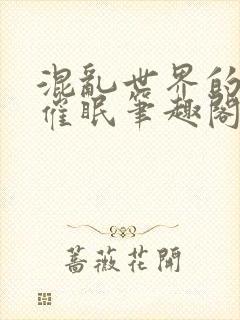 混亂世界的
催眠筆趣閣
薔薇花開